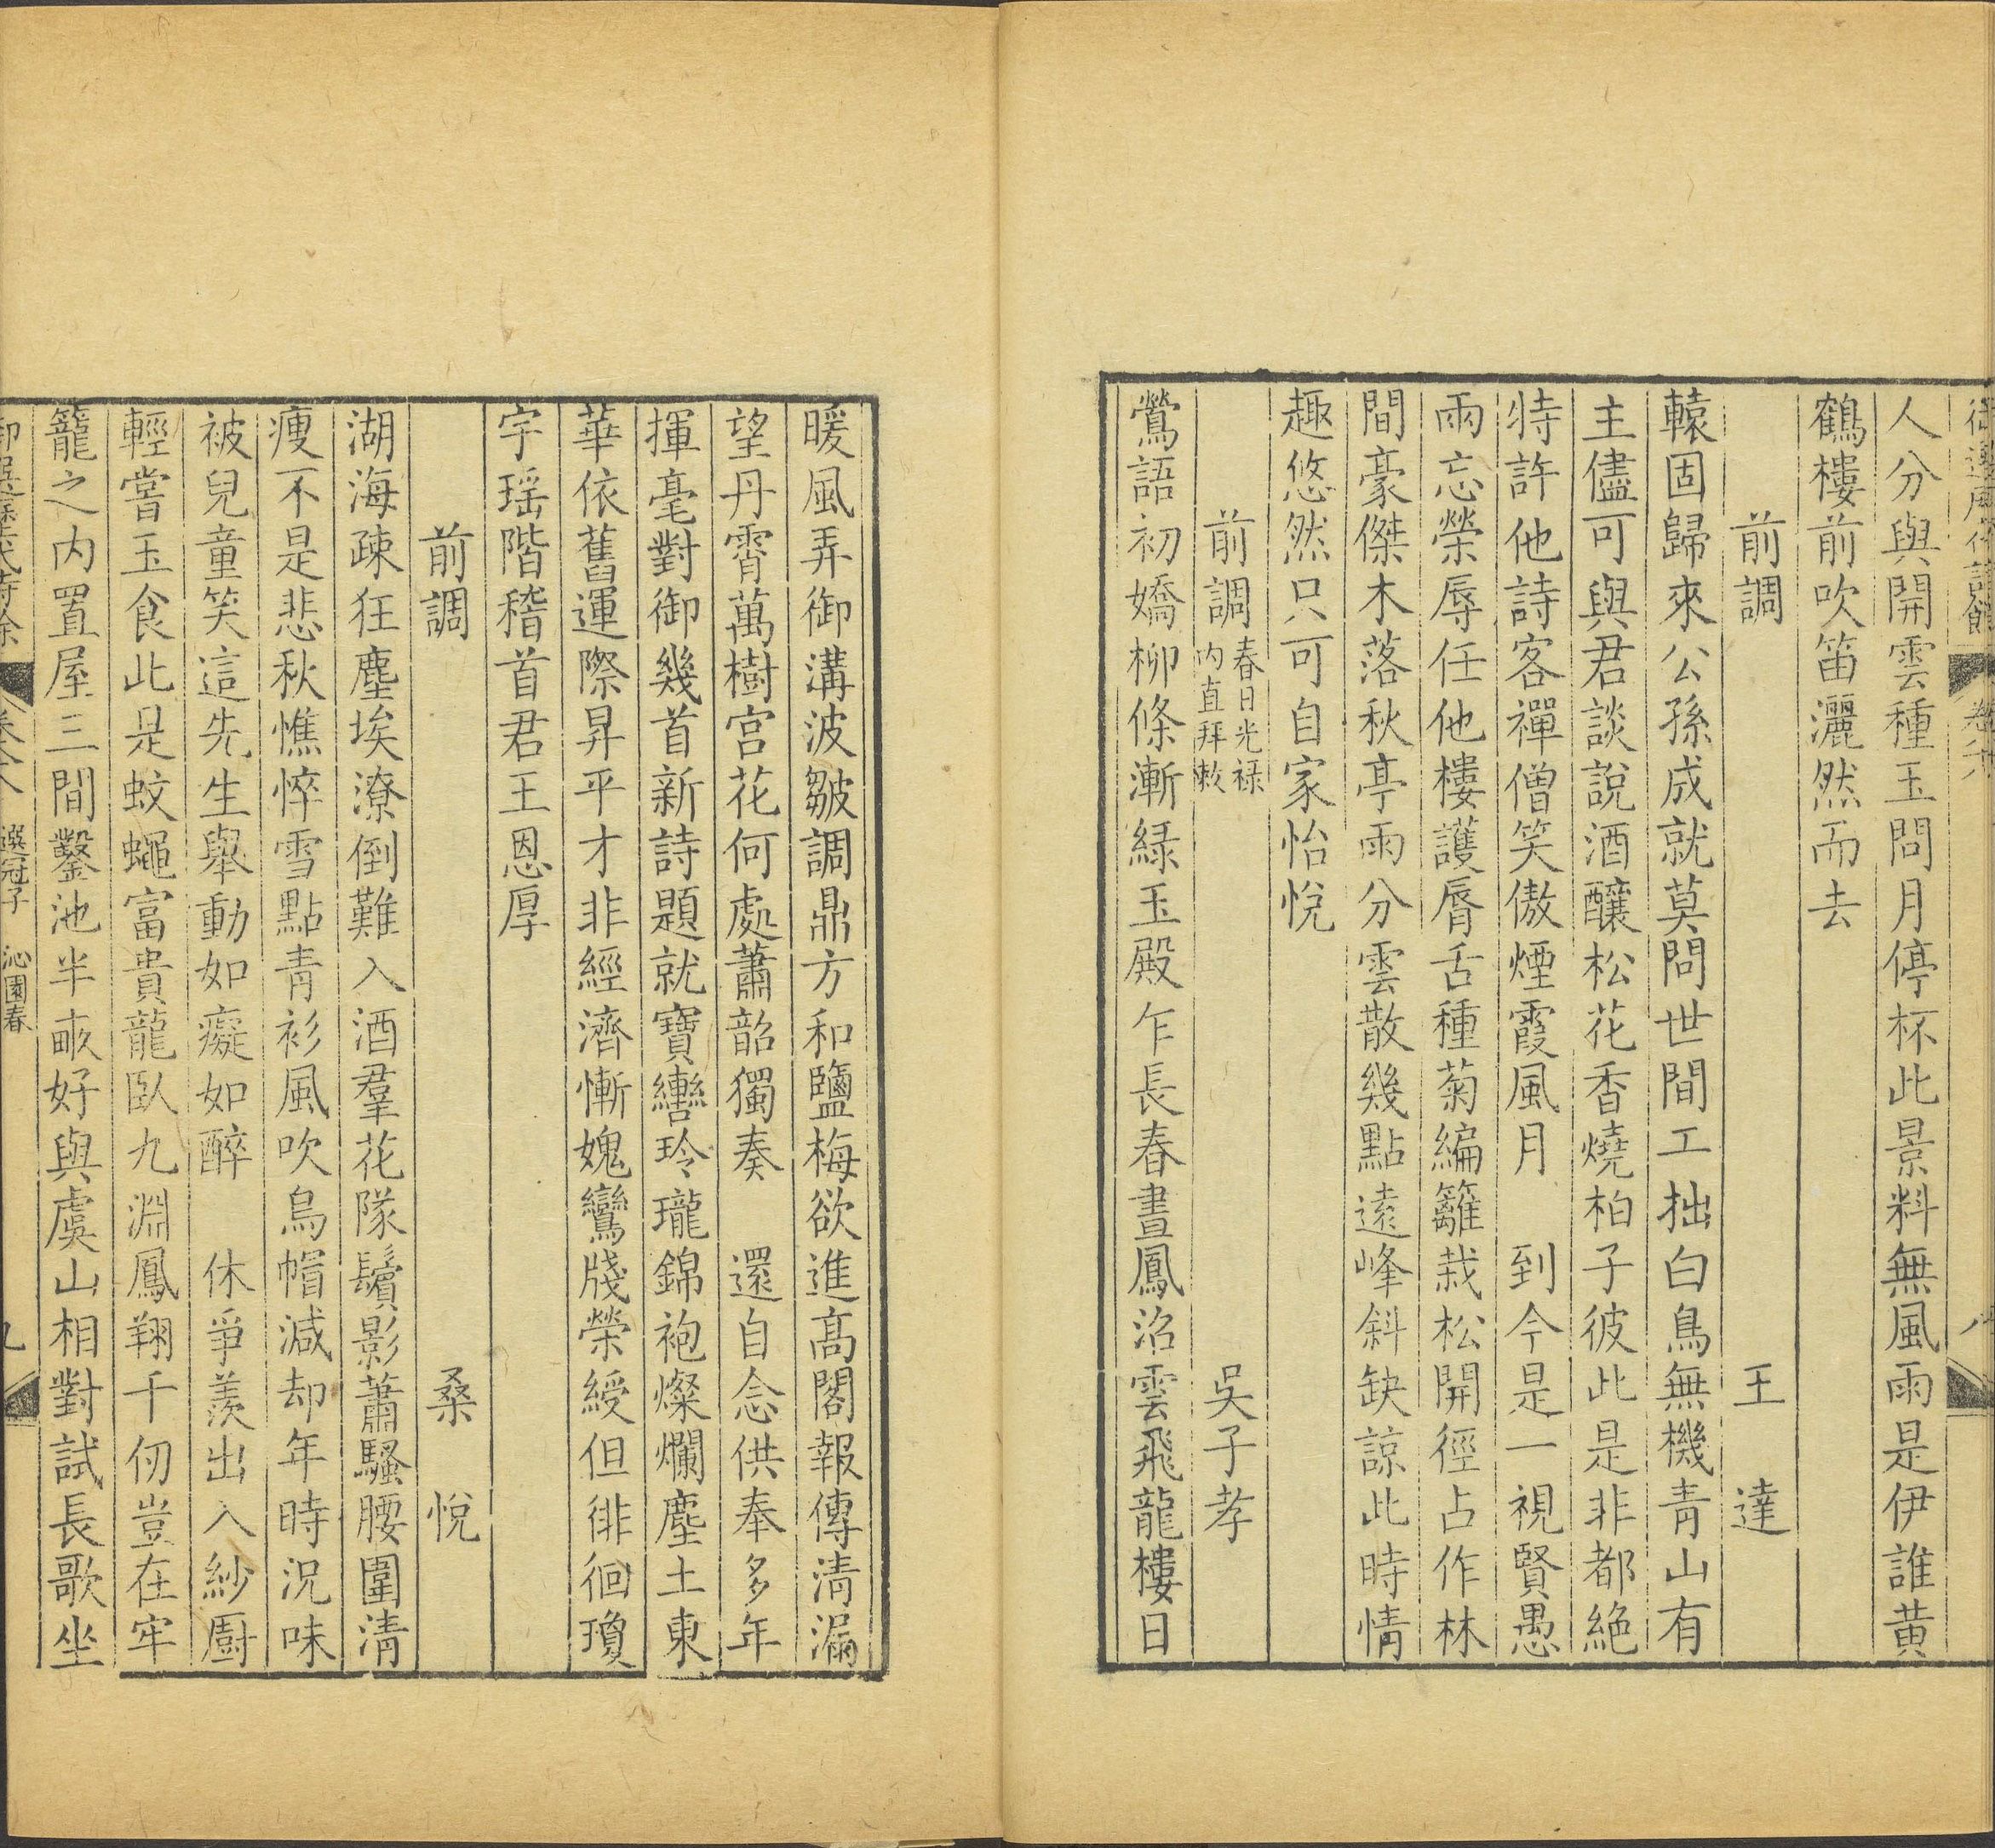 人分與開雲種玉問月停杯此景料無風雨是伊誰黄
鶴樓前吹笛灑然而去
前調　王　達
轅固歸來公孫成就莫問世間工拙白鳥無機青山有
主儘可與君談說酒釀松花香燒柏子彼此是非都絶
特許他詩客禪僧笑傲煙霞風月　到今是一視賢愚
兩忘榮辱任他樓護脣舌種菊編籬栽松開徑占作林
間豪傑木落秋亭雨分雲散幾點遠峰斜缺諒此時情
趣悠然只可自家怡悅
前調 春日光禄内直拜敕　吳子孝
鶯語初嬌柳條漸緑玉殿乍長春晝鳳沼雲飛龍樓日
暖風弄御溝波皺調鼎方和鹽梅欲進髙閣報傳清漏
望丹霄萬樹宫花何處蕭韶獨奏　還自念供奉多年
揮毫對御幾首新詩題就寶轡玲瓏錦袍燦爛塵土東
華依舊運際昇平才非經濟慚媿鸞牋榮綬但徘徊瓊
宇瑶階稽首君王恩厚
前調　桑　悅
湖海疎狂塵埃潦倒難入酒羣花隊鬢影蕭騷腰圍清
瘦不是悲秋憔悴雪點青衫風吹烏帽減却年時況味
被兒童笑這先生舉動如癡如醉　休爭羨出入紗厨
輕嘗玉食此是蚊蠅富貴龍臥九淵鳳翔千仞豈在牢
籠之内置屋三間鑿池半畞好與虞山相對試長歌坐
選冠子　沁園春
九